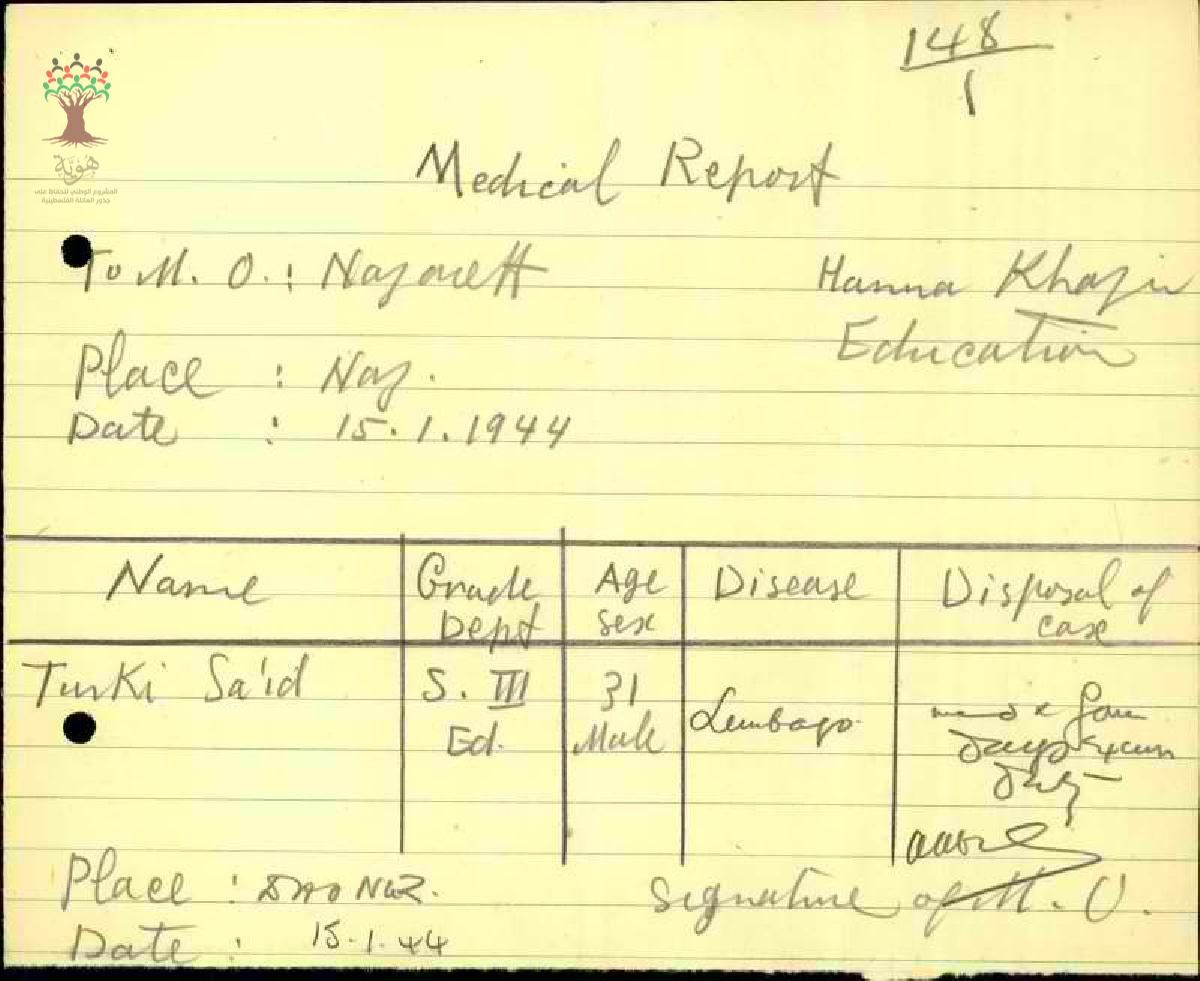 148
1
هوية
المشروع الوطني للحفاظ على
جذور العائلة الفلسطينية
Medical Report
To M. O. : Nazareth
Hanna Khazin
Education
Place : Naz.
Date : 15.1.1944
Name Grade Dept Age sex Disease Disposal of case
Turki Sa'id S. III Ed. 31 Male Lumbago four days
duty
Place : Naz.
Signature of M. O.
Date : 15.1.44